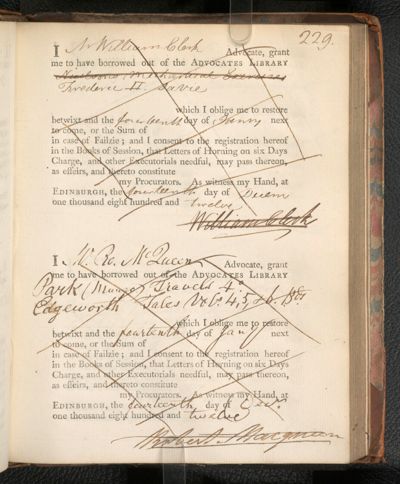 229.
I Mr William Clerk Advocate, grant
me to have borrowed out of the ADVOCATES LIBRARY
Nicholsons Mechanical Exercises
Frederic II.
which I oblige me to restore
betwixt and the fourteenth day of Janry next
to come, or the Sum of
in case of Failzie; and I consent to the registration hereof
in the Books of Session, that Letters of Horning on six Days
Charge, and other Executorials needful, may pass thereon,
as effeirs, and thereto constitute
my Procurators. As witness my Hand, at
EDINBURGH, the fourteenth day of Decem
one thousand eight hundred and twelve
William Clerk
I Mr. Ro. McQueen Advocate, grant
me to have borrowed out of the ADVOCATES LIBRARY
Park (Mungo) Travels 4o
Edgeworth Tales Vols. 4, 5, & 6.
which I oblige me to restore
betwixt and the fourteenth day of Jany next
to come, or the Sum of
in case of Failzie; and I consent to the registration hereof
in the Books of Session, that Letters of Horning on six Days
Charge, and other Executorials needful, may pass thereon,
as effeirs, and thereto constitute
my Procurators. As witness my Hand, at
EDINBURGH, the fourteenth day of Decr.
one thousand eight hundred and twelve
Robert